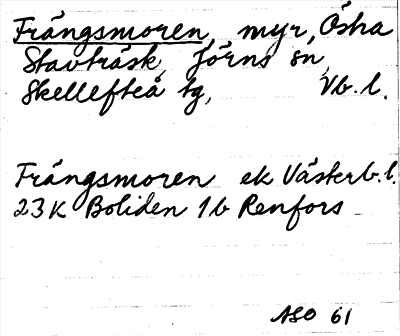 Frängsmoren, myr, Östra
Stavträsk, Jörns sn,
Skellefteå tg, Vb.l.
Frängsmoren ek Västerb.l.
23K Boliden 1b Renfors
ASO 61